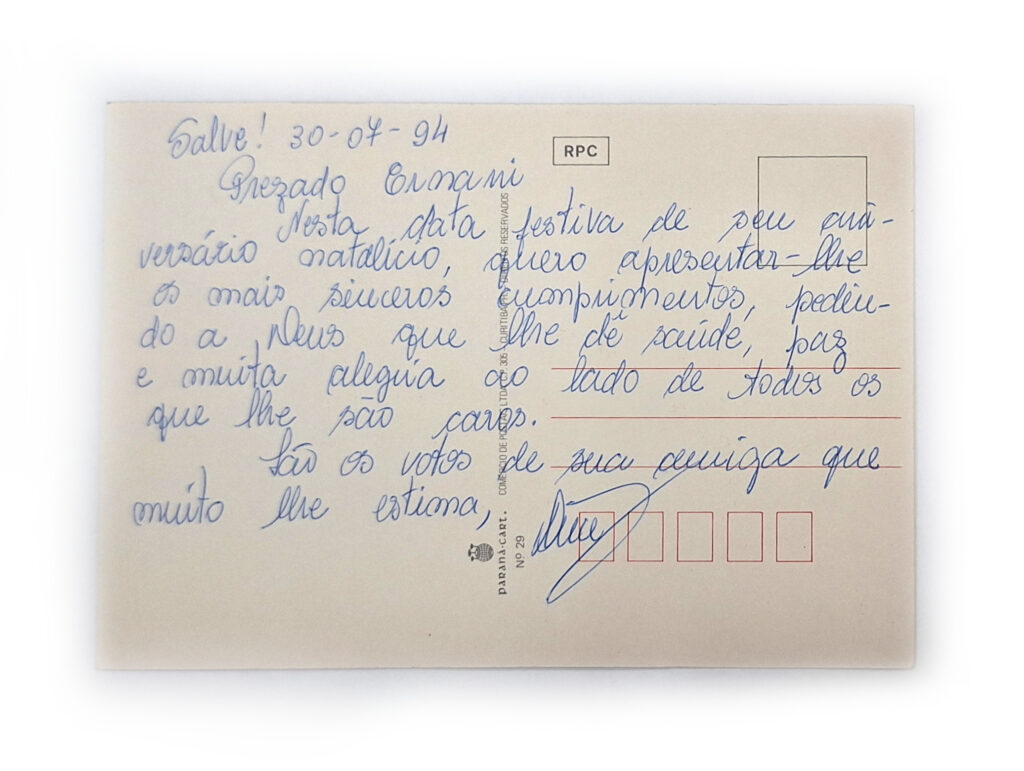 Salve! 30-07-94
Prezado Ernani
Nesta data festiva de seu ani-
versário natalício, quero apresentar-lhe
os mais sinceros cumprimentos, pedin-
do a Deus que lhe dê saúde, paz
e muita alegria ao lado de todos os
que lhe são caros.
São os votos de sua amiga que
muito lhe estima,
RPC
COMÉRCIO DE POSTAIS LTDA C.P. 305 - CURITIBA-PR - RESERVADOS
PARANÁ-CART.
Nº 29